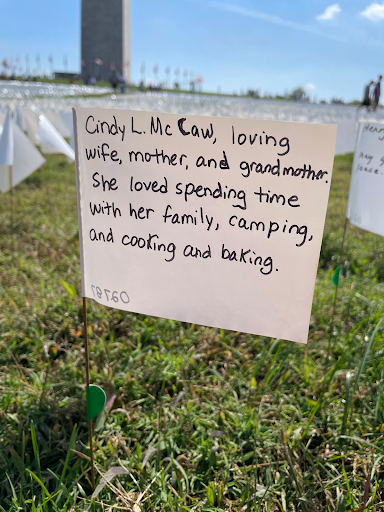 Cindy L. Mc Caw, loving
wife, mother, and grandmother.
She loved spending time
with her family, camping,
and cooking and baking.